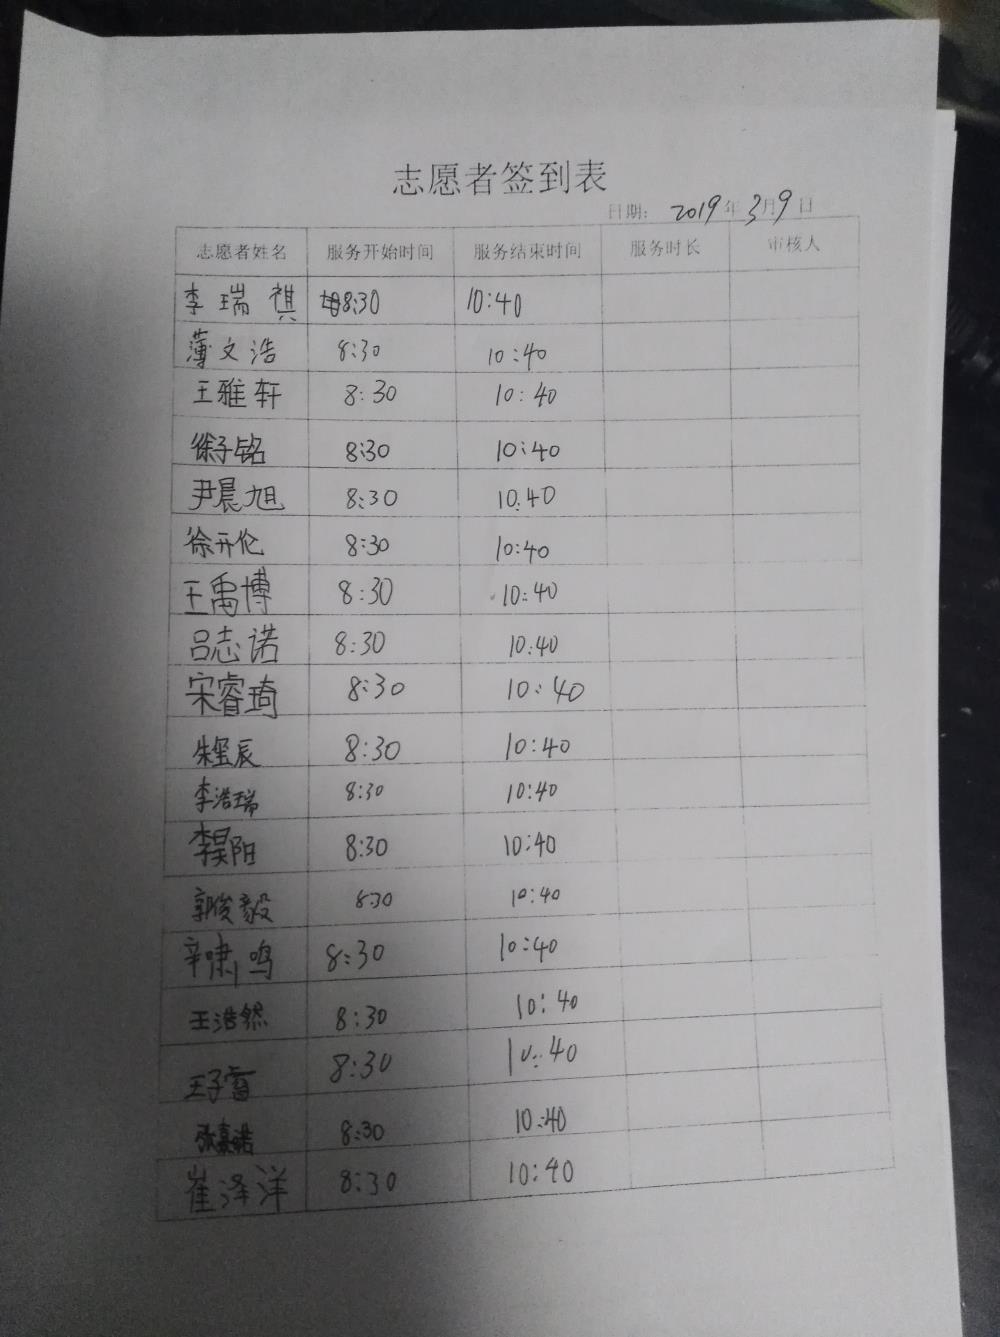 志愿者签到表
日期： 2019年3月9日
志愿者姓名 服务开始时间 服务结束时间 服务时长 审核人
李瑞祺 8:30 10:40
薄文浩 8:30 10:40
王雅轩 8:30 10:40
徐子铭 8:30 10:40
尹晨旭 8:30 10:40
徐开伦 8:30 10:40
王禹博 8:30 10:40
吕志诺 8:30 10:40
宋睿琦 8:30 10:40
朱玺辰 8:30 10:40
李浩瑞 8:30 10:40
李昊阳 8:30 10:40
郭俊毅 8:30 10:40
辛啸鸣 8:30 10:40
王浩然 8:30 10:40
王子睿 8:30 10:40
张嘉诺 8:30 10:40
崔泽洋 8:30 10:40